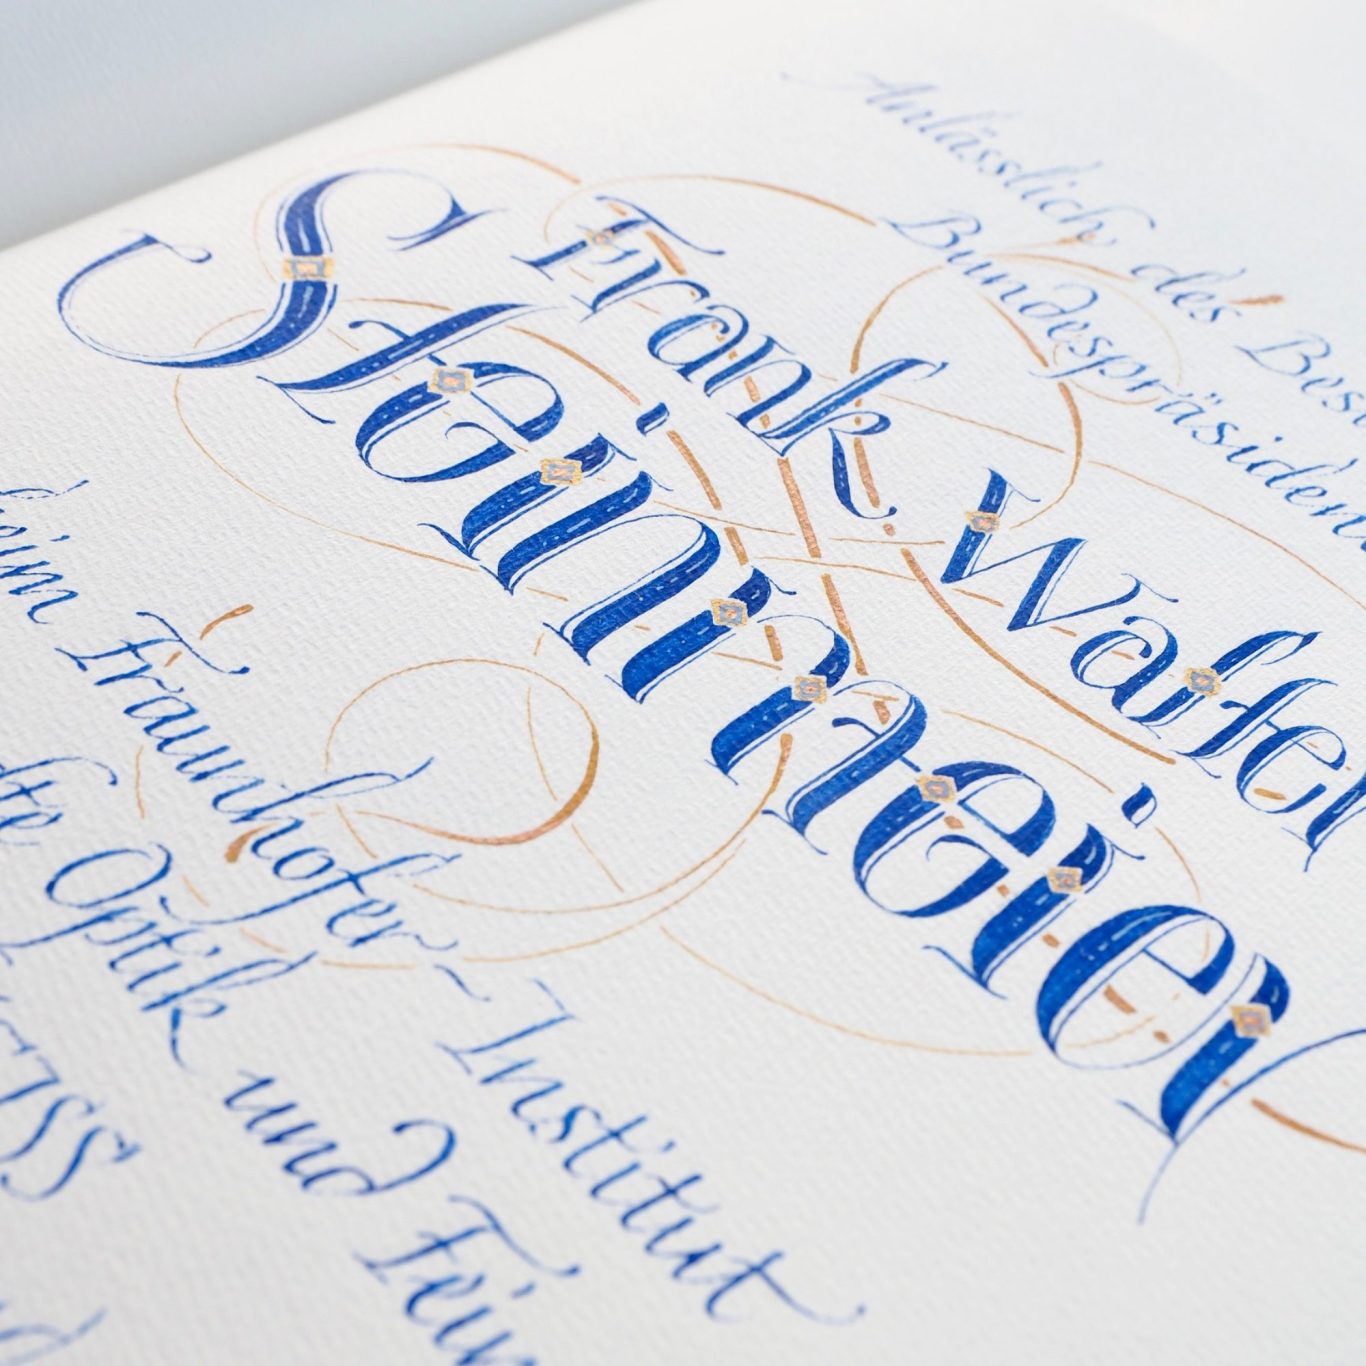 Anlässlich des
Bundespräsidenten
Frank Walter
Steinmeier
beim Fraunhofer-Institut
Optik und